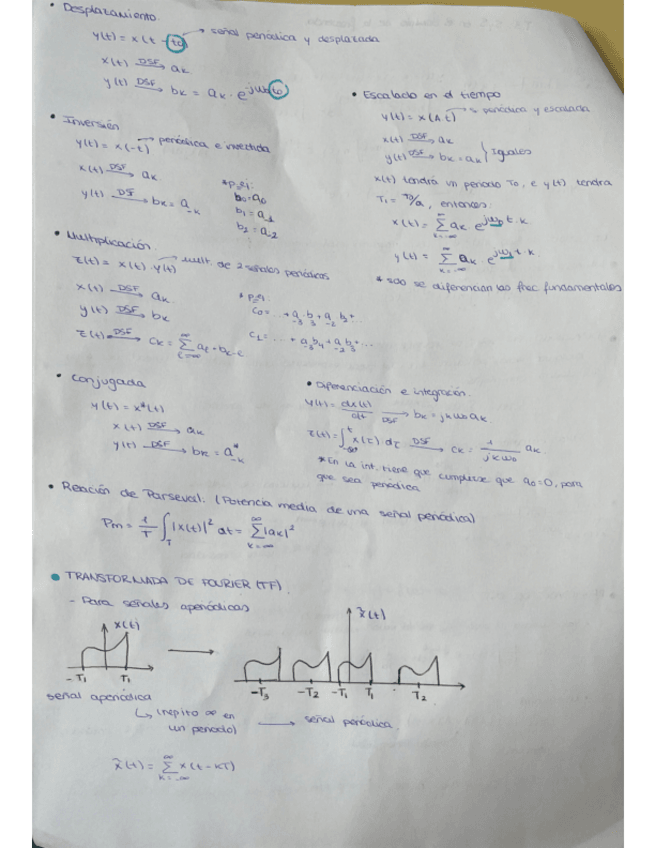 • Desplazamiento.
y(t) = x(t - t0) → señal periódica y desplazada
x(t) DSF→ ak
y(t) DSF→ bk = ak · e^jω0 t0
• Inversión
y(t) = x(-t) → periódica e invertida
x(t) DSF→ ak
y(t) DSF→ bk = a-k
* p.ej:
b0 = a0
b1 = a-1
b2 = a-2
• Multiplicación
z(t) = x(t) · y(t) → mult. de 2 señales periódicas
x(t) DSF→ ak
y(t) DSF→ bk
z(t) DSF→ ck = ∞Σℓ=-∞ aℓ · bk-ℓ
* p.ej
• Escalado en el tiempo
y(t) = x(A t) → periódica y escalada
x(t) DSF→ ak
y(t) DSF→ bk = ak } Iguales
x(t) tendrá un periodo T0, e y(t) tendrá
T1 = T0/a, entonces:
x(t) = ∞Σk=-∞ ak e^jω0 t·k
y(t) = ∞Σk=-∞ ak · e^jω1 t·k
* solo se diferencian las frec. fundamentales
• Conjugada
y(t) = x*(t)
x(t) DSF→ ak
y(t) DSF→ bk = a*-k
• Diferenciación e integración.
y(t) = dx(t)/dt DSF→ bk = jkω0 ak
z(t) = ∫t-∞ x(τ) dτ DSF→ ck = 1/jkω0 ak
* En la int. tiene que cumplirse que a0 = 0, para
que sea periódica
• Reación de Parseval. (Potencia media de una señal periódica)
Pm = 1/T ∫T |x(t)|² dt = ∞Σk=-∞ |ak|²
• TRANSFORMADA DE FOURIER (TF).
- Para señales aperiódicas
x(t)
x̃(t)
-T1 T1
-T3 -T2 -T1 T1 T2
señal aperiódica
↳ (repito ∞ en
un periodo) → señal periódica.
x̃(t) = ∞Σk=-∞ x(t-kT)